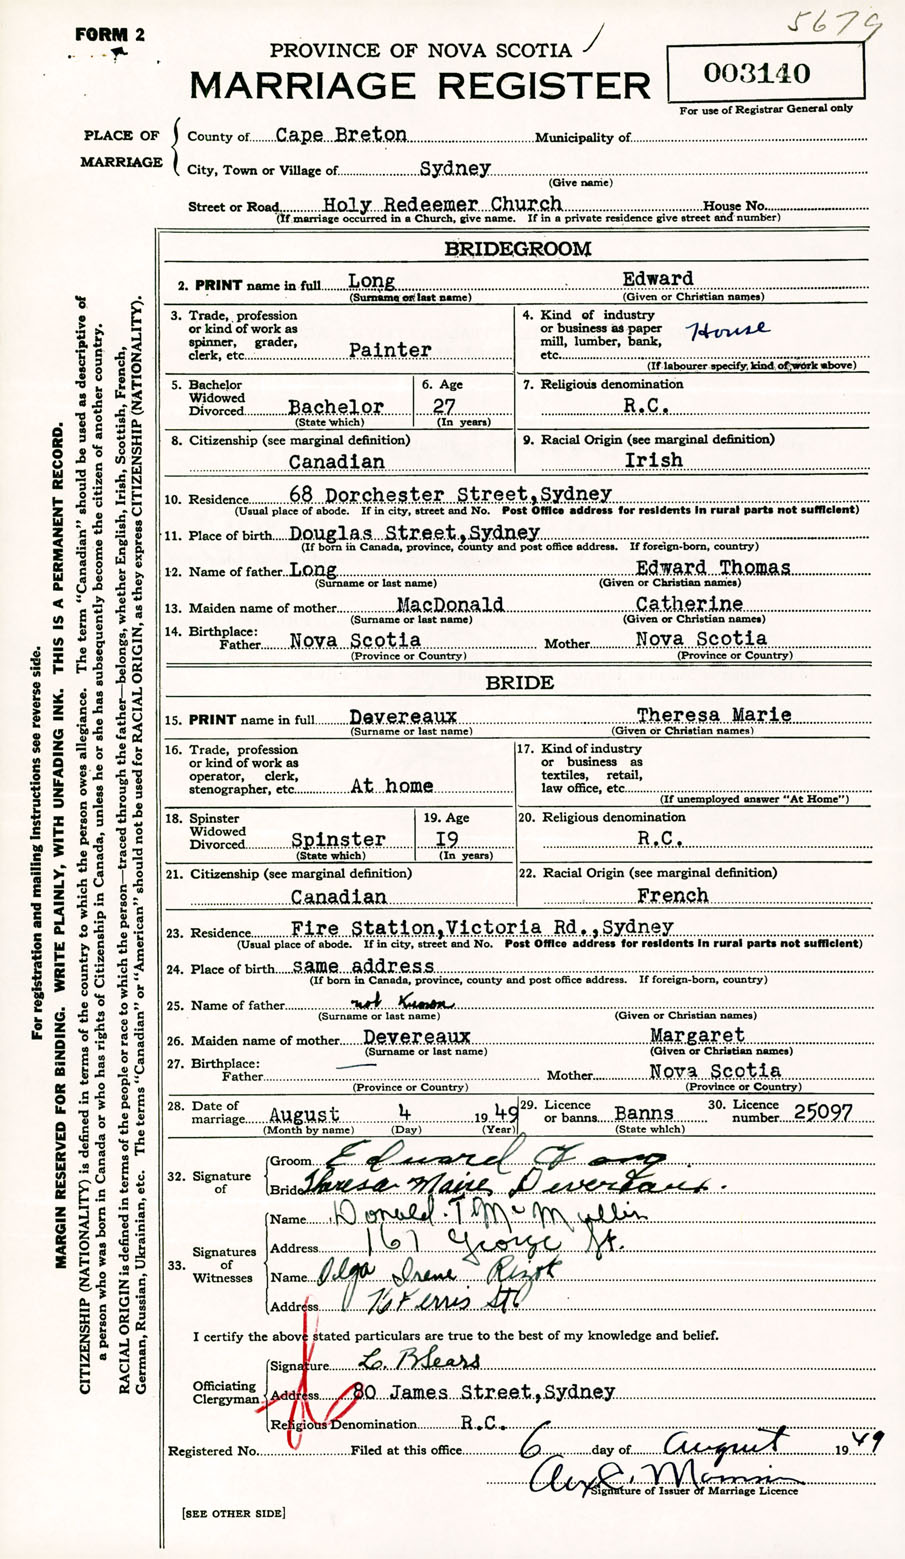 FORM 2
5679
PROVINCE OF NOVA SCOTIA
MARRIAGE REGISTER
003140
For use of Registrar General only
PLACE OF MARRIAGE
County of Cape Breton Municipality of
City, Town or Village of Sydney
(Give name)
Street or Road Holy Redeemer Church House No.
(If marriage occurred in a Church, give name. If in a private residence give street and number)
BRIDEGROOM
2. PRINT name in full Long Edward
(Surname or last name) (Given or Christian names)
3. Trade, profession or kind of work as spinner, grader, clerk, etc. Painter
4. Kind of industry or business as paper mill, lumber, bank, etc. House
(If labourer specify kind of work above)
5. Bachelor Widowed Divorced Bachelor
(State which)
6. Age 27
(In years)
7. Religious denomination
R.C.
8. Citizenship (see marginal definition)
Canadian
9. Racial Origin (see marginal definition)
Irish
10. Residence 68 Dorchester Street,Sydney
(Usual place of abode. If in city, street and No. Post Office address for residents in rural parts not sufficient)
11. Place of birth Douglas Street,Sydney
(If born in Canada, province, county and post office address. If foreign-born, country)
12. Name of father Long Edward Thomas
(Surname or last name) (Given or Christian names)
13. Maiden name of mother MacDonald Catherine
(Surname or last name) (Given or Christian names)
14. Birthplace:
Father Nova Scotia Mother Nova Scotia
(Province or Country) (Province or Country)
BRIDE
15. PRINT name in full Devereaux Theresa Marie
(Surname or last name) (Given or Christian names)
16. Trade, profession or kind of work as operator, clerk, stenographer, etc. At home
17. Kind of industry or business as textiles, retail, law office, etc.
(If unemployed answer "At Home")
18. Spinster Widowed Divorced Spinster
(State which)
19. Age I9
(In years)
20. Religious denomination
R.C.
21. Citizenship (see marginal definition)
Canadian
22. Racial Origin (see marginal definition)
French
23. Residence Fire Station,Victoria Rd.,Sydney
(Usual place of abode. If in city, street and No. Post Office address for residents in rural parts not sufficient)
24. Place of birth same address
(If born in Canada, province, county and post office address. If foreign-born, country)
25. Name of father not Known
(Surname or last name) (Given or Christian names)
26. Maiden name of mother Devereaux Margaret
(Surname or last name) (Given or Christian names)
27. Birthplace:
Father — Mother Nova Scotia
(Province or Country) (Province or Country)
28. Date of marriage August 4 1949
(Month by name) (Day) (Year)
29. Licence or banns Banns
(State which)
30. Licence number 25097
32. Signature of
Groom Edward Long
Bride Theresa Maire Devereaux.
33. Signatures of Witnesses
Name Donald. T McMullin
Address 167 George St.
Name Olga Irene
Address St
I certify the above stated particulars are true to the best of my knowledge and belief.
Officiating Clergyman
Signature L. B Sears
Address 80 James Street,Sydney
Religious Denomination R.C.
Registered No. Filed at this office 6 day of August 1949
Signature of Issuer of Marriage Licence
[SEE OTHER SIDE]
For registration and mailing instructions see reverse side.
MARGIN RESERVED FOR BINDING. WRITE PLAINLY, WITH UNFADING INK. THIS IS A PERMANENT RECORD.
CITIZENSHIP (NATIONALITY) is defined in terms of the country to which the person owes allegiance. The term "Canadian" should be used as descriptive of
a person who was born in Canada or who has rights of Citizenship in Canada, unless he or she has subsequently become the citizen of another country.
RACIAL ORIGIN is defined in terms of the people or race to which the person—traced through the father—belongs, whether English, Irish, Scottish, French,
German, Russian, Ukrainian, etc. The terms "Canadian" or "American" should not be used for RACIAL ORIGIN, as they express CITIZENSHIP (NATIONALITY).